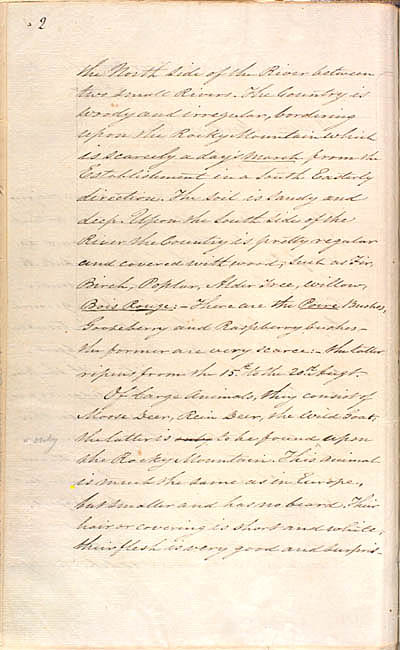 2
the North side of the River between
two small Rivers. The Country is
woody and irregular, bordering
upon the Rocky Mountain which
is scarcely a day's March from the
Establishment in a South Easterly
direction. The soil is sandy and
deep. Upon the South side of the
River the Country is pretty regular
and covered with wood; such as Fir,
Birch, Poplar, Alder Tree, Willow,
Bois Rouge:- There are the Poire Bushes,
Gooseberry and Raspberry bushes-
the former are very scarce:- the latter
ripens from the 15th to the 20th Augt.
Of large Animals, they consist of
Moose Deer, Rein Deer, the Wild Goat;
the latter is only to be found upon
only
the Rocky Mountain. This animal
is much the same as in Europe,
but smaller and has no beard. Their
hair or covering is short and white,
their flesh is very good and surpris-